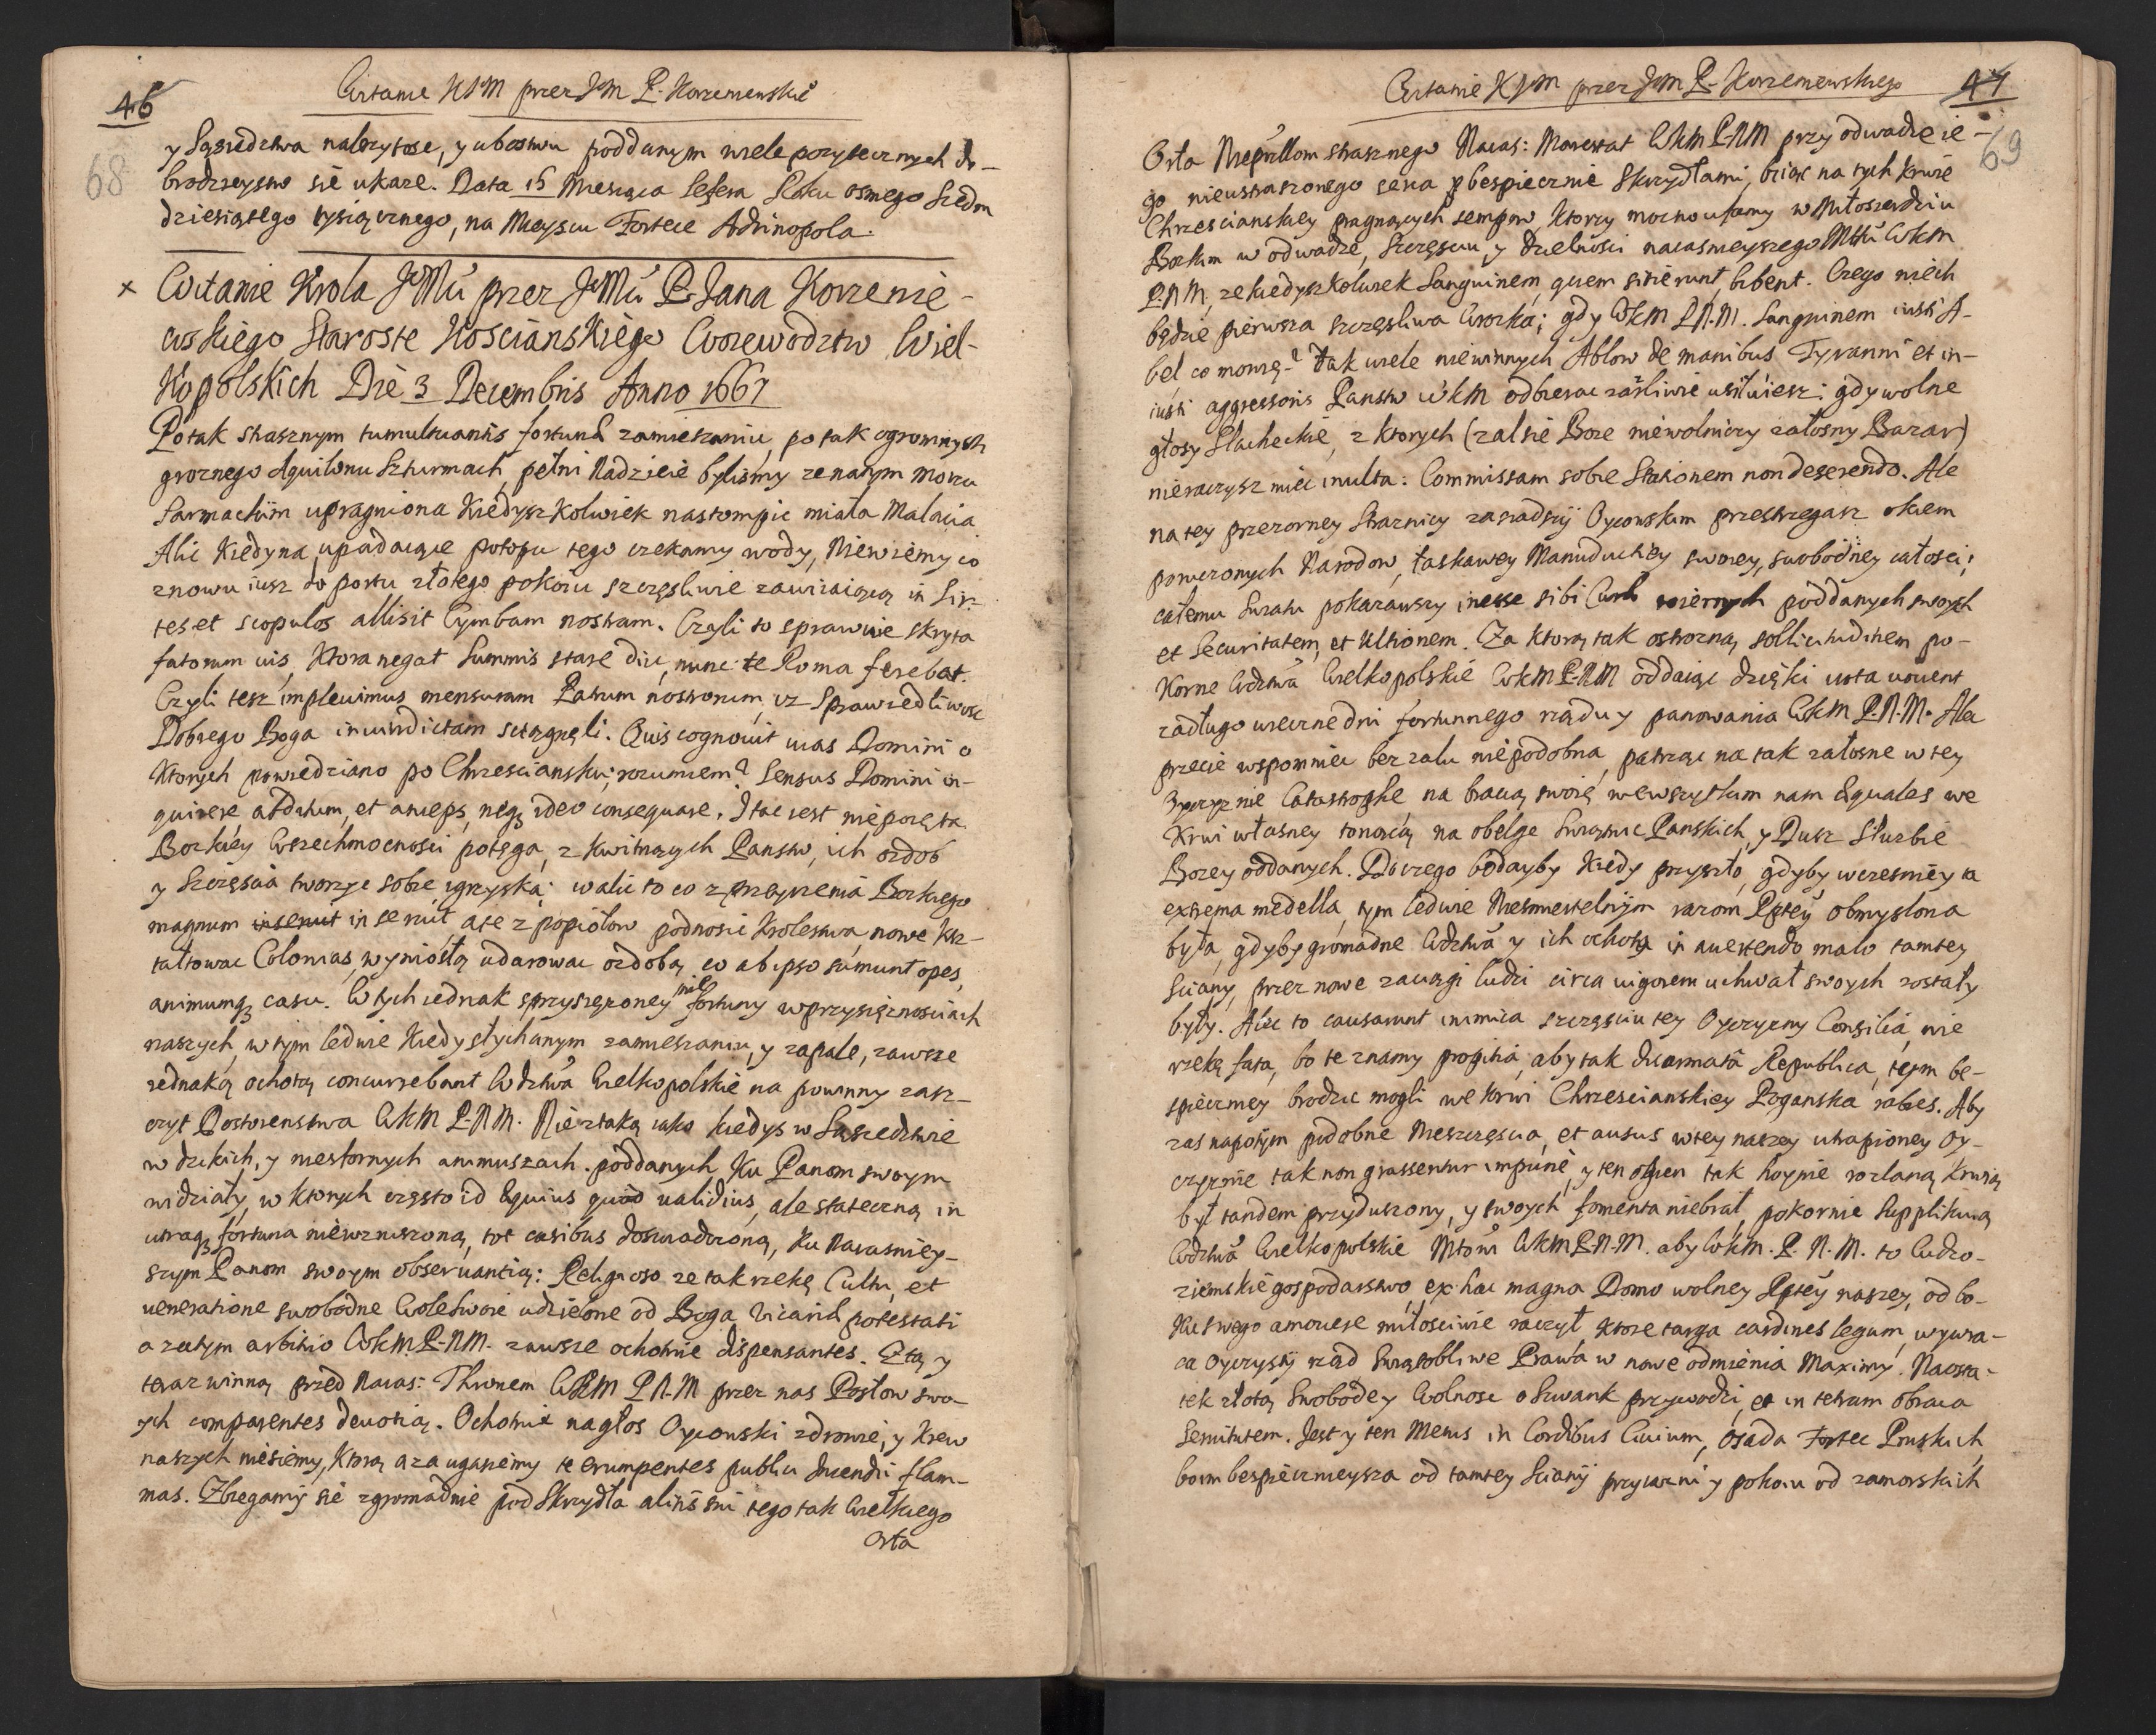 46
Witanie KJM przez JeM P. Korzeniewskie
68
y Sąsiedztwa należytose, y ubostwu poddanym wiele pozytecznych do-
brodzieystw się ukaze. Data 15 Miesiąca Sefera Roku osmego Siedm
dziesiątego tysiącznego, na Mieyscu Fortece Adrinopola.
x Witanie Krola JeMci przez JeMci P. Jana Korzenie-
wskiego Staroste Koscianskiego Woiewodztw Wiel-
kopolskich Die 3 Decembris Anno 1667
Po tak strasznym tumultuantis fortunæ zamieszaniu, po tak ogromnych
groznego Aquilonu Szturmach, pełni Nadzieie bylismy ze na tym Morzu
Sarmackim upragniona kiedyszkolwiek nastompic miała Malacia
Alic kiedy na upadaiące potopu tego czekamy wody, Niewiemy co
znowu iusz do portu złotego pokoiu szczęsliwie zawiiaiącą in Sir-
tes et scopulos allisit Cymbam nostram. Czyli to sprawuie skryta
fatorum vis, ktora negat Summis stare diu, nunc te Roma ferebat.
Czyli tesz implevimus mensuram Patrum nostrorum, vz Sprawiedliwosc
Dobrego Boga in vindictam sciągnęli. Quis cognovit vias Domini o
ktorych powiedziano po Chrzesciansku; rozumiem? Sensus Domini in-
quirere arduum, et anceps, neq₃ ideo consequare. Ita iest niepoięta
Boskiey Wszechmocnosci potęga, z kwitnących Panstw, ich ozdob
y Szczęscia tworzyc sobie igrzyska; walic to co z przeyrzenia Boskiego
magnum insenuit insenuit, ale z popiołow podnosic Krolestwa, nowe ksz-
tałtowac Colonias, wyniosłą udarowac ozdobą, co ab ipso sumunt opes,
animumq₃ casu. W tych iednak sprzysięzoney fortuny w przysięznosciach
naszych, w tym ledwie kiedy słychanym zamieszaniu, y zapale, zawsze
iednaką ochotą concurrebant Wdztwa Wielkopolskie na powinny zasz-
czyt Dostoienstwa WKM P.N.M. Nie z taką iako kiedys w Sąsiedztwie
w dzikich, y niesfornych animuszach poddanych ku Panom swoym
widziały, w ktorych często id Equius quod validius, ale stateczną in
utraq₃ fortuna niewzruszoną, tot casibus doswiadczoną, ku Naiasniey-
szym Panom swoym observantią: Religioso ze tak rzekę Cultu, et
veneratione swobodne Wolestwoie udzielone od Boga Vicariæ potestati
a zatym arbitrio WKM. P.N.M. zawsze ochotnie dispensantes. Z tą y
teraz winną przed Naias: Thronem WKM P N.M przez nas Posłow swo-
ych comparentes devotią. Ochotnie na głos Oycowski zdrowie, y krew
naszych niesiemy, ktorą aza ugasiemy te erumpentes publici Incendii flam-
mas. Zbiegamy się zgromadnie pod Skrzydła tego tak Wielkiego
Orła
Witanie KJM przez JeM P. Korzeniewskiego 47
69
Orła strasznego Naias: Maiestat WKM P.N.M przy odwadze ie-
go nieustraszonego serca ubespiecznie Skrzydłami, biiąc na tych krwie
Chrzescianskiey pragnących sempow ktorzy mocno ufamy w Miłosierdziu
Boskim w odwadze, Szczęsciu y dzielnosci naiasnieyszego Mttu WKM
P.N.M, ze kiedyszkolwiek Sanguinem, quem sitierunt, bibent. Czego niech
będzie pierwsza szczęsliwa Wrozka; gdy WKM P.N.M. Sanguinem iusti A-
bel, co mowię? tak wiele niewinnych Ablow de manibus Tyranni et in-
iusti aggressoris Panstw WKM odbierac zarliwie usiłuiesz: gdy wolne
głosy Slacheckie, z ktorych (zal się Boze niewolniczy załosny Bazar)
nieraczysz miec inulta: Commissam sobie Stationem non deserendo. Ale
na tey przezorney Straznicy zasiadszy Oycowskim przestrzegasz okiem
powierzonych Narodow, łaskawey Manuductiey swoiey, swobodney całosci;
całemu Swiatu pokazawszy inesse sibi wiernych poddanych swoych
et Securitatem, et Ultionem. Za ktorą tak ostrozną sollicitudinem po-
korne Wdztwa Wielkopolskie WKM P.N.M oddaiąc dzięki vota vovent
za długo wieczne dni fortunnego rządu y panowania WKM P.N.M. Ale
przecie wspomniec bez zalu niepodobna, patrząc na tak załosne w tey
Oyczyznie Catastrophe na bracią swoię we wszystkim nam Equales we
krwi własney tonącą na obelge Swiątnic Panskich, y Dusz Słuzbie
Bozey oddanych. Do czego bodayby kiedy przyszło, gdyby wczesniey ta
extrema medella, tym ledwie Niesmiertelnym razom Rptey obmyslona
była, gdyby gromadne Wdztwa y ich ochota in avertendo malo tamtey
Sciany, przez nowe zaciągi ludzi circa vigorem uchwał swoych zostały
były. Alec to causarunt inimica szczęsciu tey Oyczyzny Consilia, nie
rzekę fata, bo te znamy propitia, aby tak disarmata Republica, tym be-
spieczniey brodzic mogli we krwi Chrzescianskiey Poganska rabies. Aby
zas napotym podobne Nieszczęscia, et ausus w tey naszey utrapioney Oy-
czyznie tak non grassentur impune, y ten ogien tak hoynie rozlaną krwią
był tandem przyduszony, y swoych fomenta niebrał, pokornie Supplikuią
Wdztwa Wielkopolskie Mtowi WKM P.N.M. aby WKM. P. N. M. to Cudzo-
ziemskie gospodarstwo, ex hac magna Domo wolney Rptey naszey, od bo-
ku swego amovere miłosciwie raczył, ktore targa cardines legum, wywra-
ca Oyczysty rząd Swiątobliwe Prawa w nowe odmienia Maximy. Naosta-
tek złotą Swobodę y Wolnosc o Szwank przywodzi, et in tetram obraca
Servitutem. Jest y ten Metus in Cordibus Civium, osada Fortec Pruskich
bo im bespiecznieysza od tamtey Sciany przyiazni y pokoiu od zamorskich